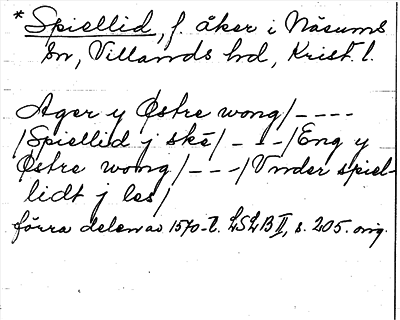 * Spiellid, f. åker i Näsums
sn, Villands hd, Krist. l.
Ager y Østre wong/----
/Spiellid j ske/---/Eng y
Østre wong/---/Vnder spiel-
lidt j les/
förra delen av 1570-t. LSLB II, s. 205. orig.